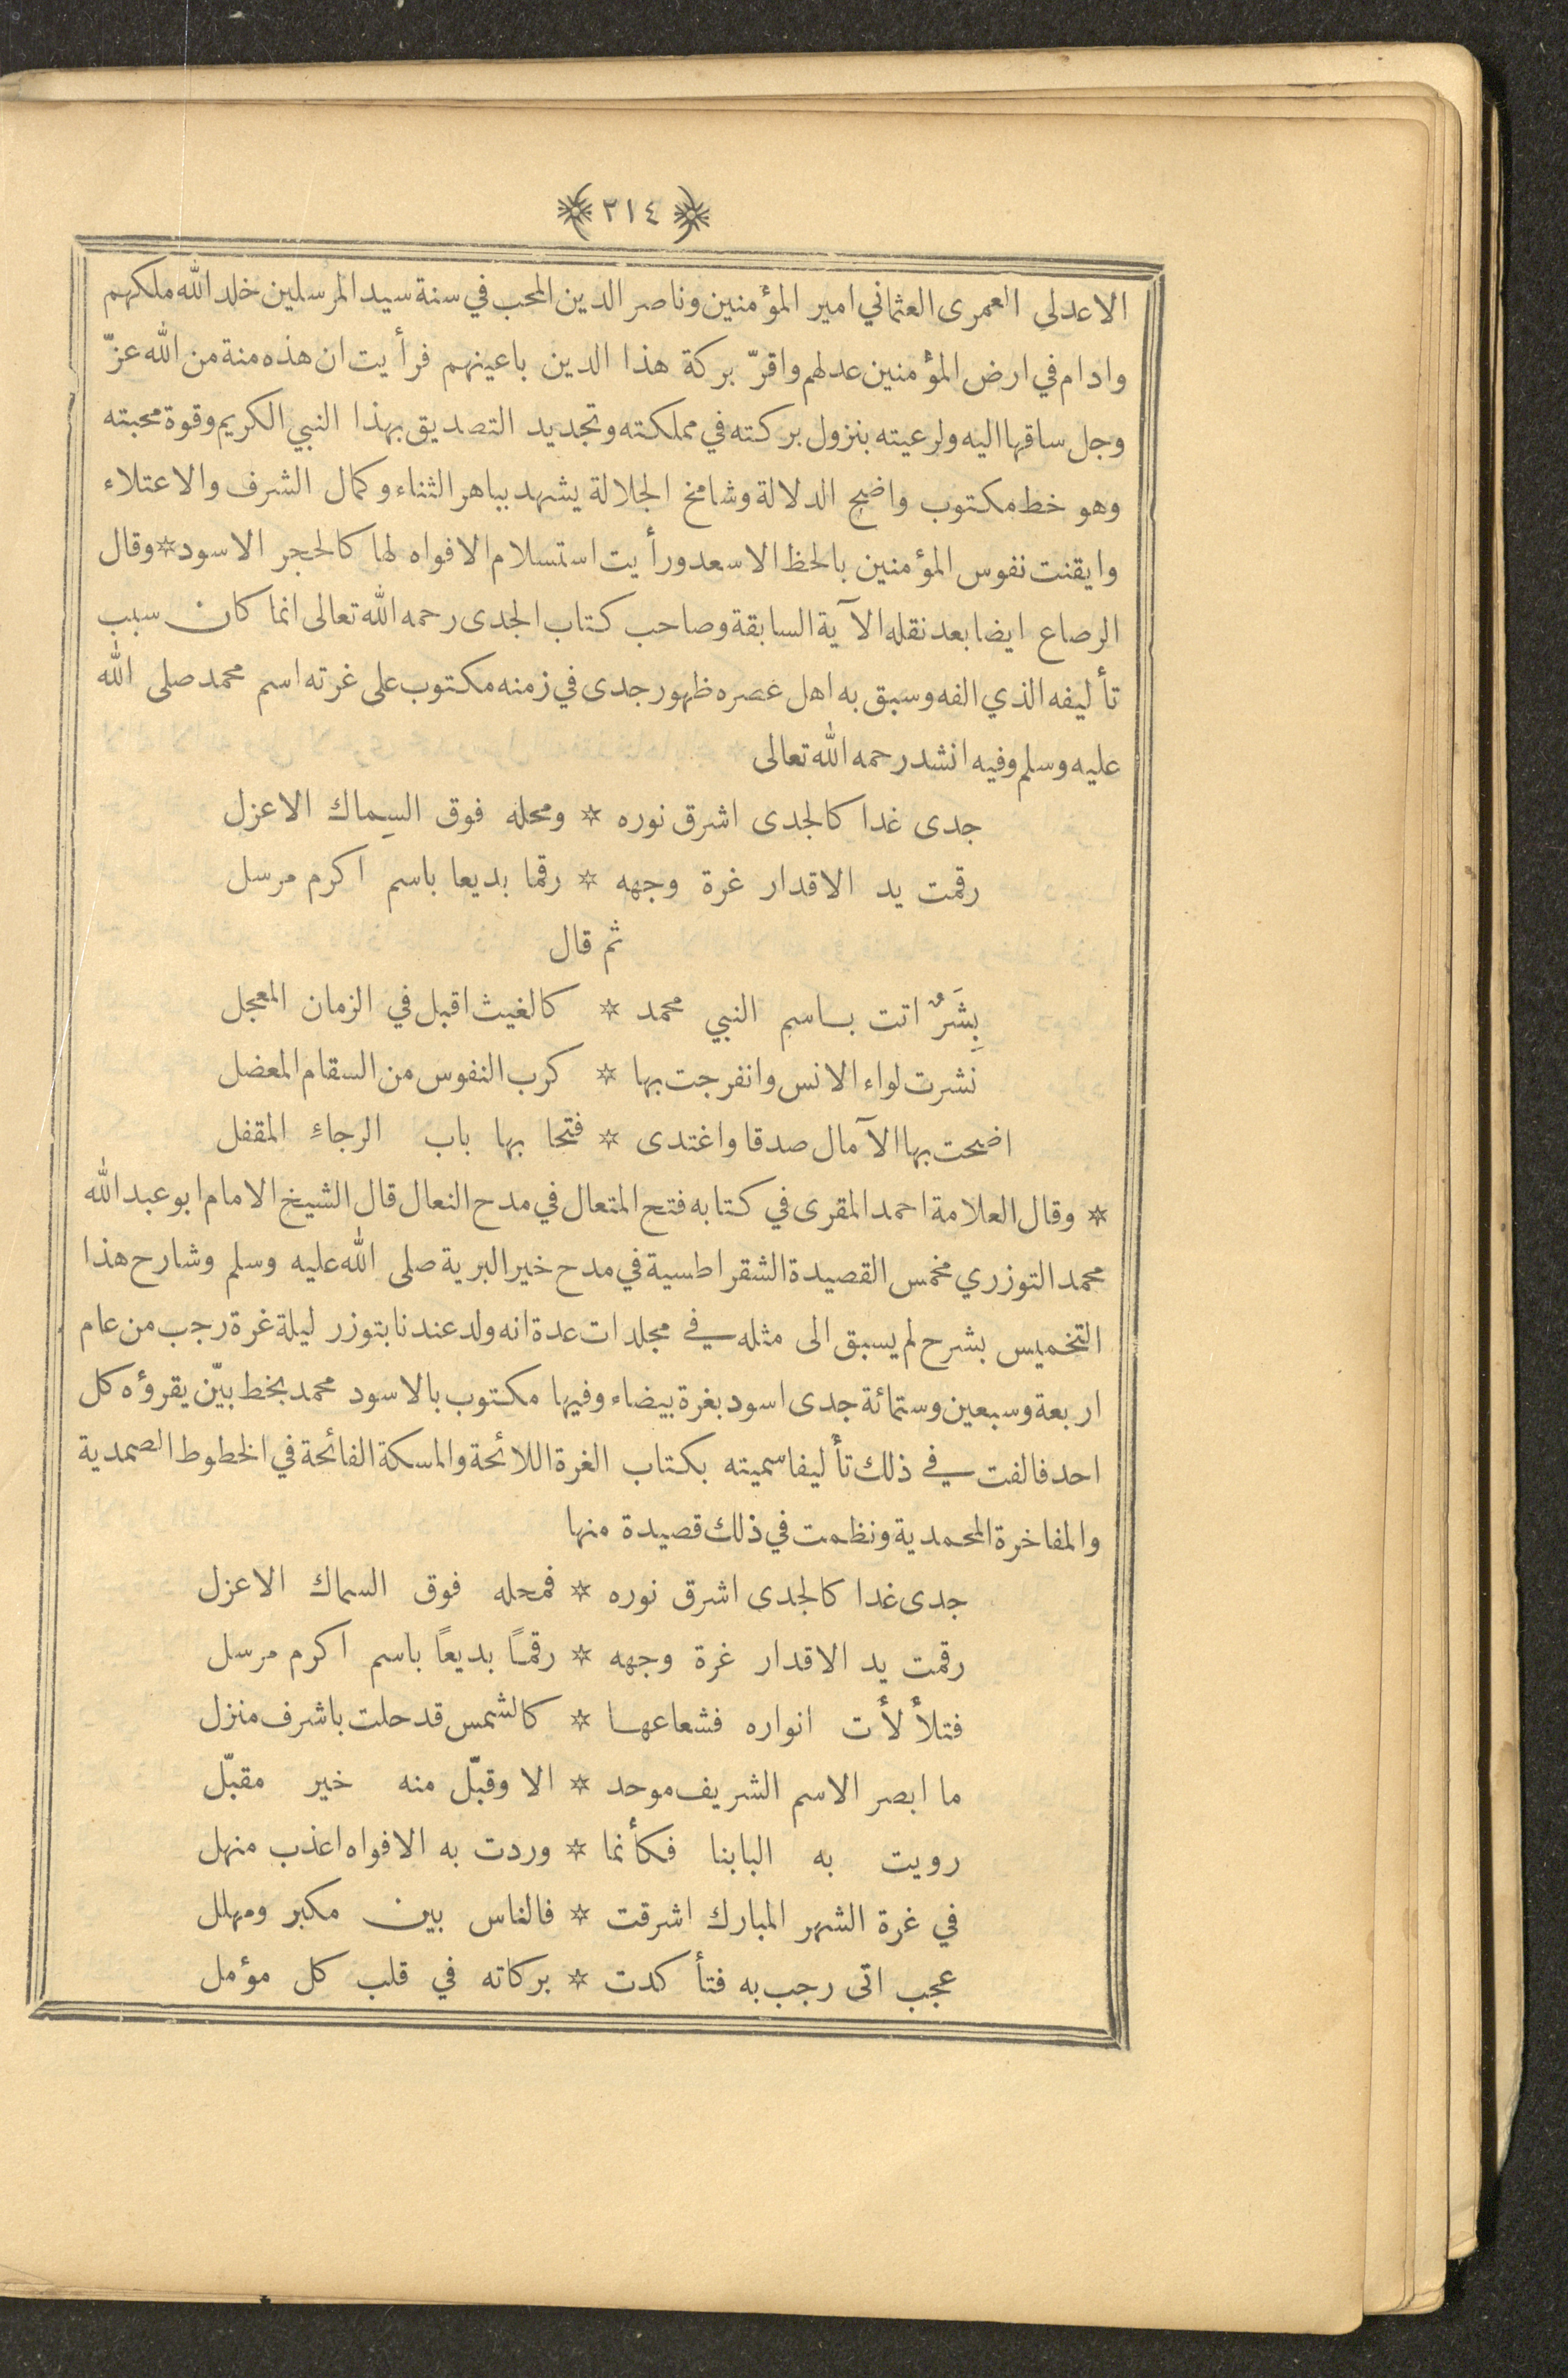 ﴿ ٢١٤ ﴾
الاعدلى العمرى العثماني امير المؤمنين وناصر الدين المحب في سنة سيد المرسلين خلد الله ملكهم
وادام في ارض المؤمنين عدلهم واقرّ بركة هذا الدين باعينهم فرأيت ان هذه منة من الله عزّ
وجل ساقها اليه ولرعيته بنزول بركته في مملكته وتجديد التصديق بهذا النبي الكريم وقوة محبته
وهو خط مكتوب واضح الدلالة وشامخ الجلالة يشهد بباهر الثناء وكمال الشرف والاعتلاء
وايقنت نفوس المؤمنين بالحظ الاسعد ورأيت استسلام الافواه لها كالحجر الاسود * وقال
الرصاع ايضا بعد نقله الآية السابقة وصاحب كتاب الجدى رحمه الله تعالى انما كان سبب
تأليفه الذي الفه وسبق به اهل عصره ظهور جدى في زمنه مكتوب على غرته اسم محمد صلى الله
عليه وسلم وفيه انشد رحمه الله تعالى
جدى غدا كالجدى اشرق نوره * ومحله فوق السِماك الاعزل
رقمت يد الاقدار غرة وجهه * رقما بديعا باسم اكرم مرسل
ثم قال
بِشَرٌ اتت باسم النبي محمد * كالغيث اقبل في الزمان المعجل
نشرت لواء الانس وانفرجت بها * كرب النفوس من السقام المعضل
اضحت بها الآمال صدقا واغتدى * فتحا بها باب الرجاءِ المقفل
* وقال العلامة احمد المقرى في كتابه فتح المتعال في مدح النعال قال الشيخ الامام ابو عبد الله
محمد التوزري مخمس القصيدة الشقراطسية في مدح خير البرية صلى الله عليه وسلم وشارح هذا
التخميس بشرح لم يسبق الى مثله في مجلدات عدة انه ولد عندنا بتوزر ليلة غرة رجب من عام
اربعة وسبعين وستمائة جدى اسود بغرة بيضاء وفيها مكتوب بالاسود محمد بخط بيّن يقرؤه كل
احد فالفت في ذلك تأليفا سميته بكتاب الغرة اللائحة والمسكة الفائحة في الخطوط الصمدية
والمفاخرة المحمدية ونظمت في ذلك قصيدة منها
جدى غدا كالجدى اشرق نوره * فمحله فوق السماك الاعزل
رقمت يد الاقدار غرة وجهه * رقمًا بديعًا باسم اكرم مرسل
فتلألأت انواره فشعاعها * كالشمس قد حلت باشرف منزل
ما ابصر الاسم الشريف موحد * الا وقبّل منه خير مقبّل
رويت به البابنا فكأنما * وردت به الافواه اعذب منهل
في غرة الشهر المبارك اشرقت * فالناس بين مكبر ومهلل
عجب اتى رجب به فتأكدت * بركاته في قلب كل مؤمل